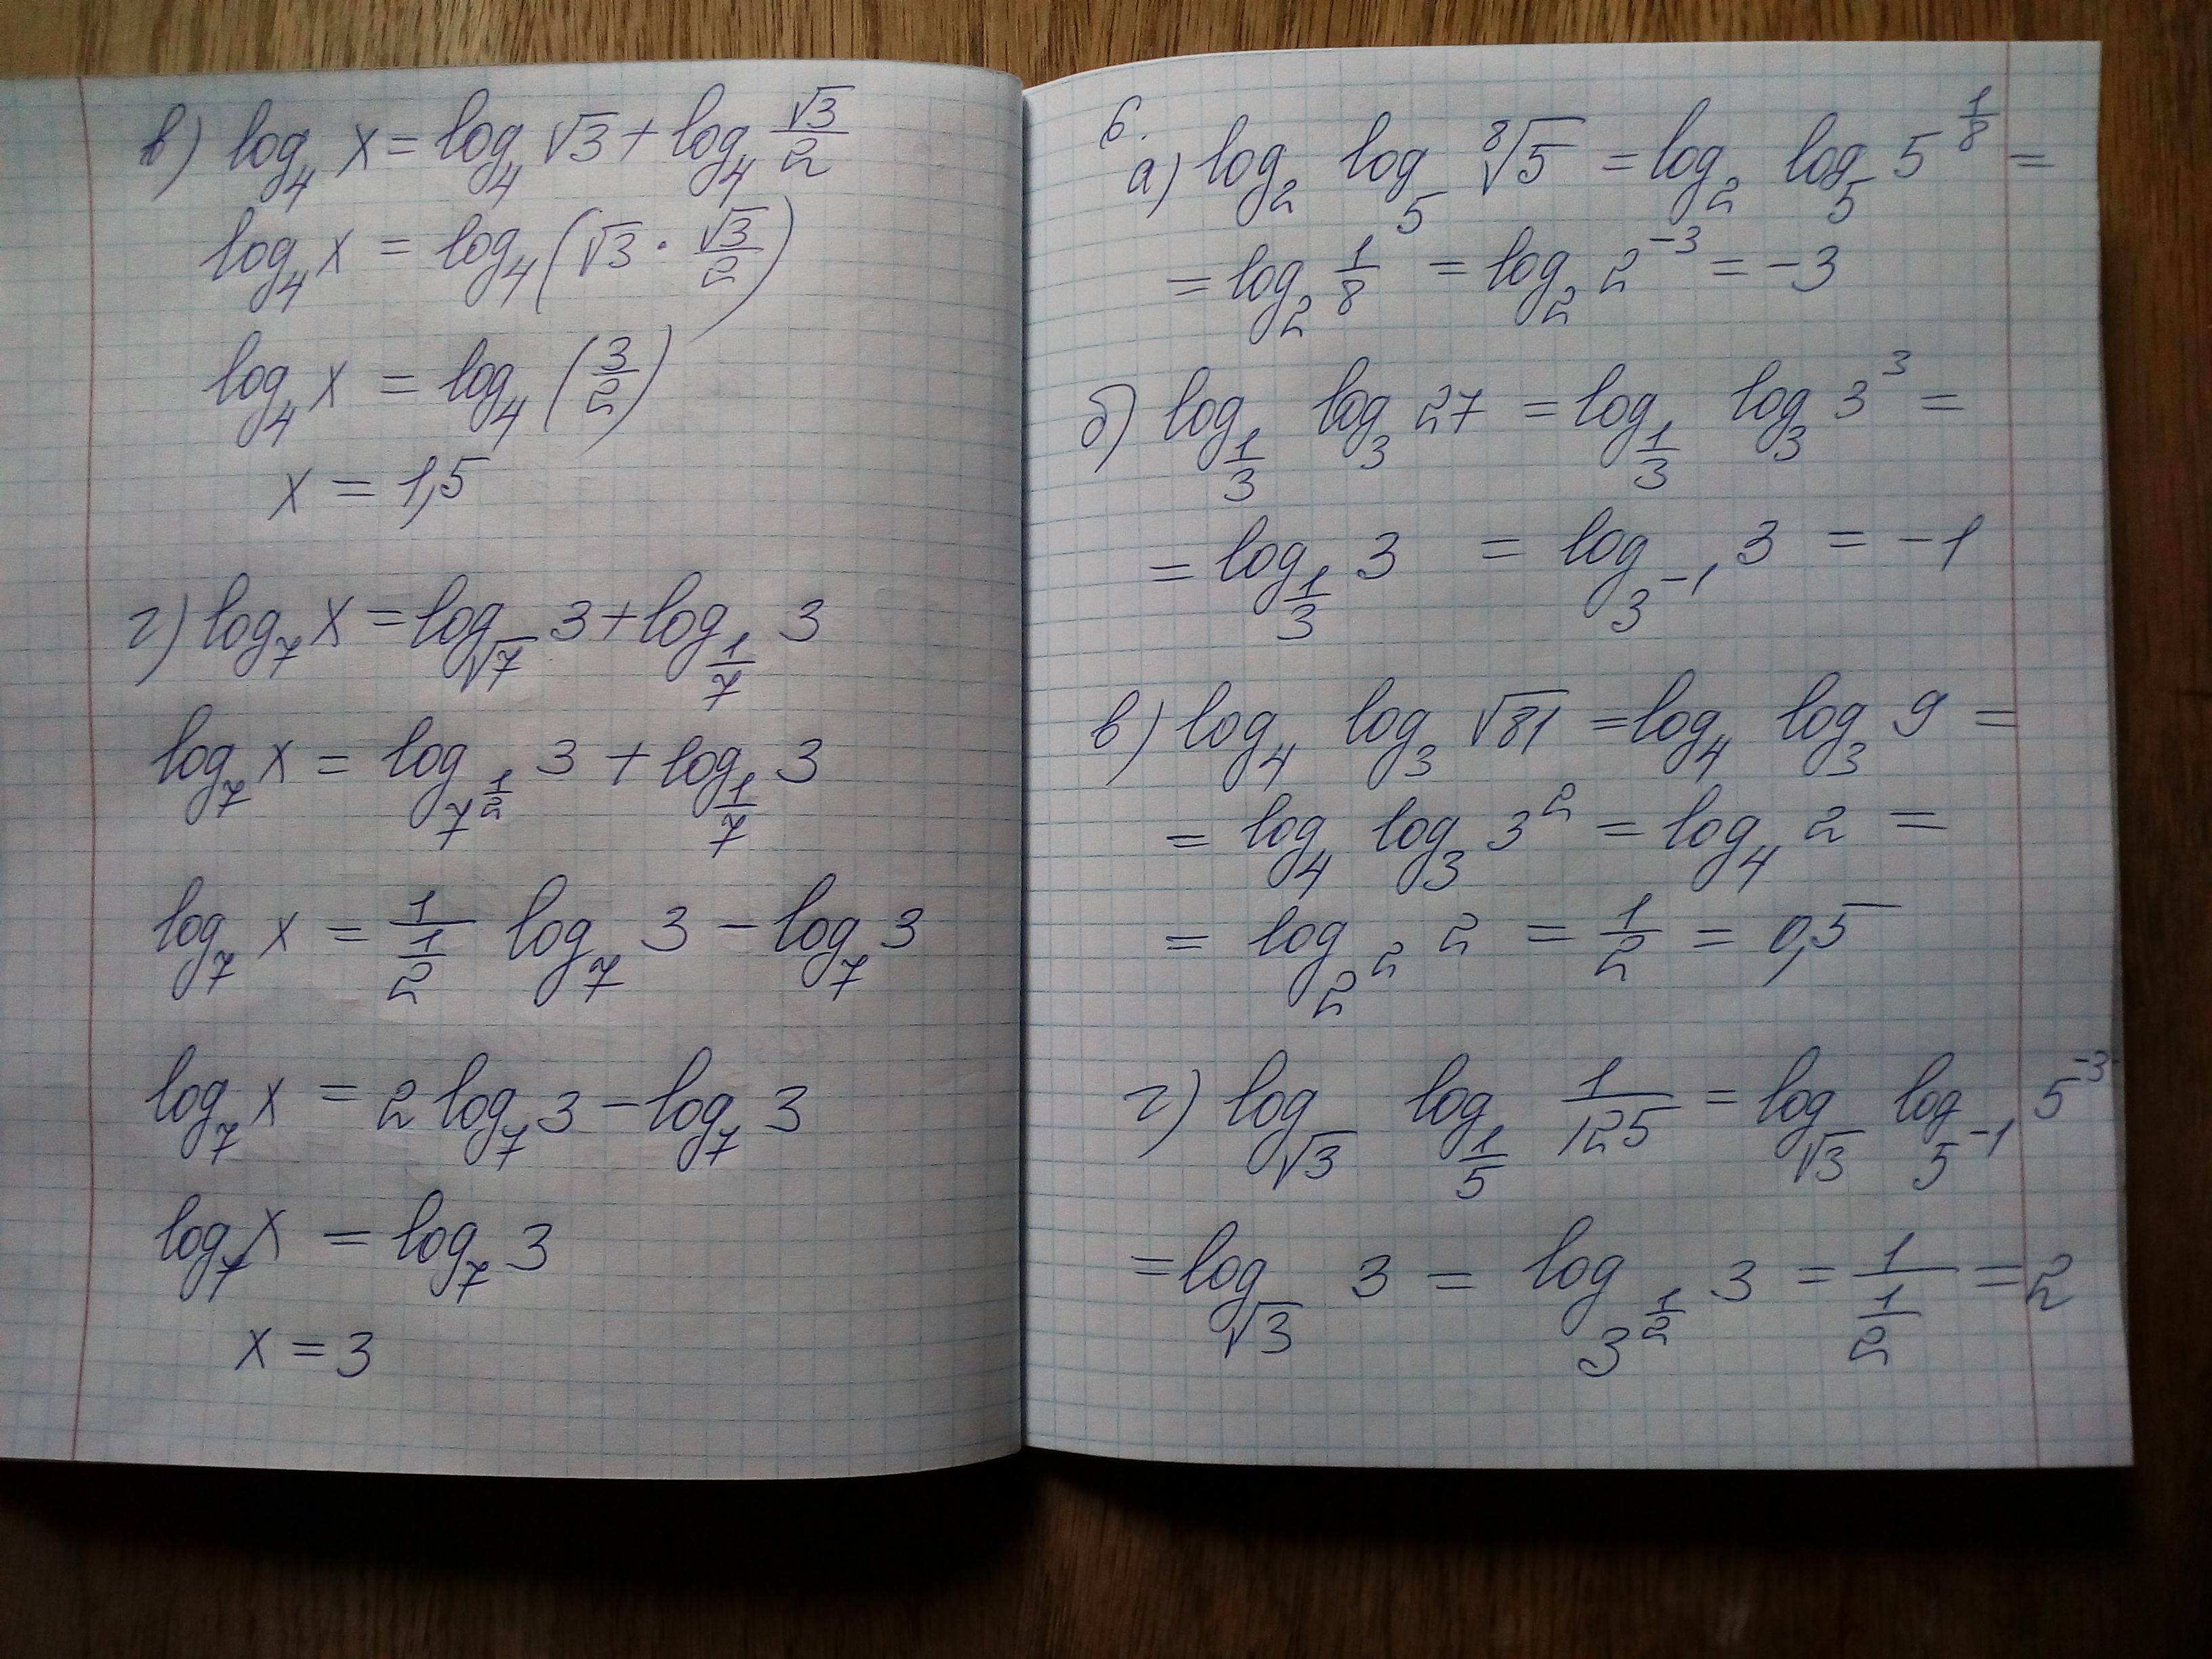 в) log₄ x = log₄ √3 + log₄ √3/2
log₄ x = log₄ (√3 · √3/2)
log₄ x = log₄ (3/2)
x = 1,5
г) log₇ x = log_√7 3 + log_1/7 3
log₇ x = log_7^1/2 3 + log_1/7 3
log₇ x = 1/(1/2) log₇ 3 − log₇ 3
log₇ x = 2 log₇ 3 − log₇ 3
log₇ x = log₇ 3
x = 3
6.
а) log₂ log₅ ⁸√5 = log₂ log₅ 5^1/8 =
= log₂ 1/8 = log₂ 2⁻³ = −3
б) log_1/3 log₃ 27 = log_1/3 log₃ 3³ =
= log_1/3 3 = log_3⁻¹ 3 = −1
в) log₄ log₃ √81 = log₄ log₃ 9 =
= log₄ log₃ 3² = log₄ 2 =
= log_2² 2 = 1/2 = 0,5
г) log_√3 log_1/5 1/125 = log_√3 log_5⁻¹ 5⁻³
= log_√3 3 = log_3^1/2 3 = 1/(1/2) = 2